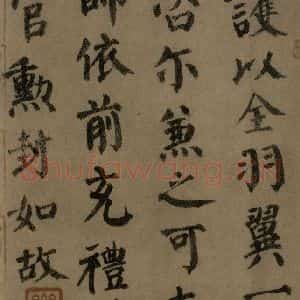 護以全羽翼一
咨尔兼之可
師依前充禮
官勳封如故
Shufawang.CN